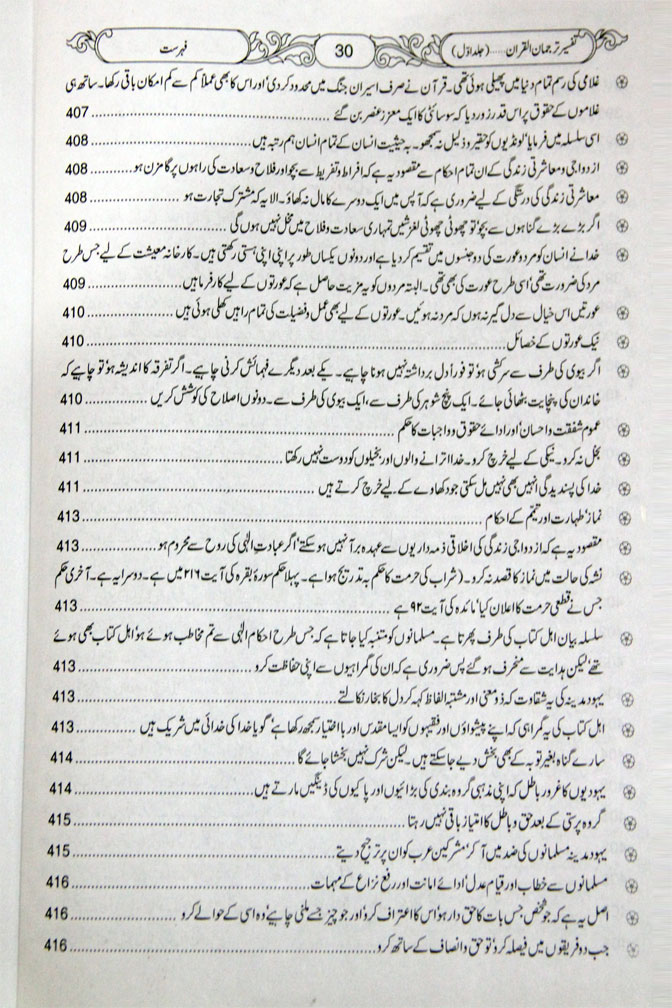 تفسیر ترجمان القرآن......(جلد اوّل) 30 فہرست
غلامی کی رسم تمام دنیا میں پھیلی ہوئی تھی۔ قرآن نے صرف اسیران جنگ میں محدود کر دی، اور اس کا بھی عملاً کم سے کم امکان باقی رکھا۔ ساتھ ہی
غلاموں کے حقوق پر اس قدر زور دیا کہ سوسائٹی کا ایک معزز عنصر بن گئے ........ 407
اسی سلسلہ میں فرمایا، لونڈیوں کو حقیر و ذلیل نہ سمجھو۔ بہ حیثیت انسان کے تمام انسان ہم رتبہ ہیں ........ 408
ازدواجی و معاشرتی زندگی کے ان تمام احکام سے مقصود یہ ہے کہ افراط و تفریط سے بچو اور فلاح و سعادت کی راہوں پر گامزن ہو ........ 408
معاشرتی زندگی کی درستگی کے لیے ضروری ہے کہ آپس میں ایک دوسرے کا مال نہ کھاؤ۔ الا یہ کہ مشترک تجارت ہو ........ 408
اگر بڑے بڑے گناہوں سے بچو، تو چھوٹی چھوٹی لغزشیں تمہاری سعادت و فلاح میں مخل نہیں ہوں گی ........ 409
خدا نے انسان کو مرد و عورت کی دو جنسوں میں تقسیم کر دیا ہے اور دونوں یکساں طور پر اپنی اپنی ہستی رکھتی ہیں۔ کارخانہ معیشت کے لیے جس طرح
مرد کی ضرورت تھی، اسی طرح عورت کی بھی تھی۔ البتہ مردوں کو یہ مزیت حاصل ہے کہ عورتوں کے لیے کارفرما ہیں ........ 409
عورتیں اس خیال سے دل گیر نہ ہوں کہ مرد نہ ہوئیں۔ عورتوں کے لیے بھی عمل و فضیلت کی تمام راہیں کھلی ہوئی ہیں ........ 410
نیک عورتوں کے خصائل ........ 410
اگر بیوی کی طرف سے سرکشی ہو، تو فوراً دل برداشتہ نہیں ہونا چاہیے۔ یکے بعد دیگرے فہمائش کرنی چاہیے۔ اگر تفرقہ کا اندیشہ ہو، تو چاہیے کہ
خاندان کی پنچایت بٹھائی جائے۔ ایک پنچ شوہر کی طرف سے، ایک بیوی کی طرف سے۔ دونوں اصلاح کی کوشش کریں ........ 410
عموم شفقت و احسان، اور ادائے حقوق و واجبات کا حکم ........ 411
بخل نہ کرو۔ نیکی کے لیے خرچ کرو۔ خدا اترانے والوں اور بخیلوں کو دوست نہیں رکھتا ........ 411
خدا کی پسندیدگی انہیں بھی نہیں مل سکتی جو دکھاوے کے لیے خرچ کرتے ہیں ........ 411
نماز، طہارت اور تیمّم کے احکام ........ 413
مقصود یہ ہے کہ ازدواجی زندگی کی اخلاقی ذمہ داریوں سے عہدہ برآ نہیں ہو سکتے، اگر عبادتِ الٰہی کی روح سے محروم ہو ........ 413
نشہ کی حالت میں نماز کا قصد نہ کرو۔ (شراب کی حرمت کا حکم بہ تدریج ہوا ہے۔ پہلا حکم سورۂ بقرہ کی آیت ۲۱۶ میں ہے۔ دوسرا یہ ہے۔ آخری حکم
جس نے قطعی حرمت کا اعلان کیا، مائدہ کی آیت ۹۲ ہے ........ 413
سلسلہ بیان اہل کتاب کی طرف پھرتا ہے۔ مسلمانوں کو متنبہ کیا جاتا ہے کہ جس طرح احکام الٰہی سے تم مخاطب ہوئے ہو، اہل کتاب بھی ہوئے
تھے، لیکن ہدایت سے منحرف ہو گئے پس ضروری ہے کہ ان کی گمراہیوں سے اپنی حفاظت کرو ........ 413
یہود مدینہ کی یہ شقاوت کہ ذو معنی اور مشتبہ الفاظ کہہ کر دل کا بخار نکالتے ........ 413
اہل کتاب کی یہ گمراہی کہ اپنے پیشواؤں اور فقیہوں کو ایسا مقدس اور با اختیار سمجھ رکھا ہے، گویا خدا کی خدائی میں شریک ہیں ........ 413
سارے گناہ بغیر توبہ کے بھی بخش دیے جا سکتے ہیں۔ لیکن شرک نہیں بخشا جائے گا ........ 414
یہودیوں کا غرور باطل کہ اپنی مذہبی گروہ بندی کی بڑائیوں اور پاکیوں کی ڈینگیں مارتے ہیں ........ 414
گروہ پرستی کے بعد حق و باطل کا امتیاز باقی نہیں رہتا ........ 415
یہود مدینہ مسلمانوں کی ضد میں آ کر، مشرکین عرب کو ان پر ترجیح دیتے ........ 415
مسلمانوں سے خطاب اور قیام عدل، ادائے امانت اور رفع نزاع کے مہمات ........ 416
اصل یہ ہے کہ جو شخص جس بات کا حق دار ہو، اس کا اعتراف کرو، اور جو چیز جسے ملنی چاہیے، وہ اسی کے حوالے کرو ........ 416
جب دو فریقوں میں فیصلہ کرو، تو حق و انصاف کے ساتھ کرو ........ 416